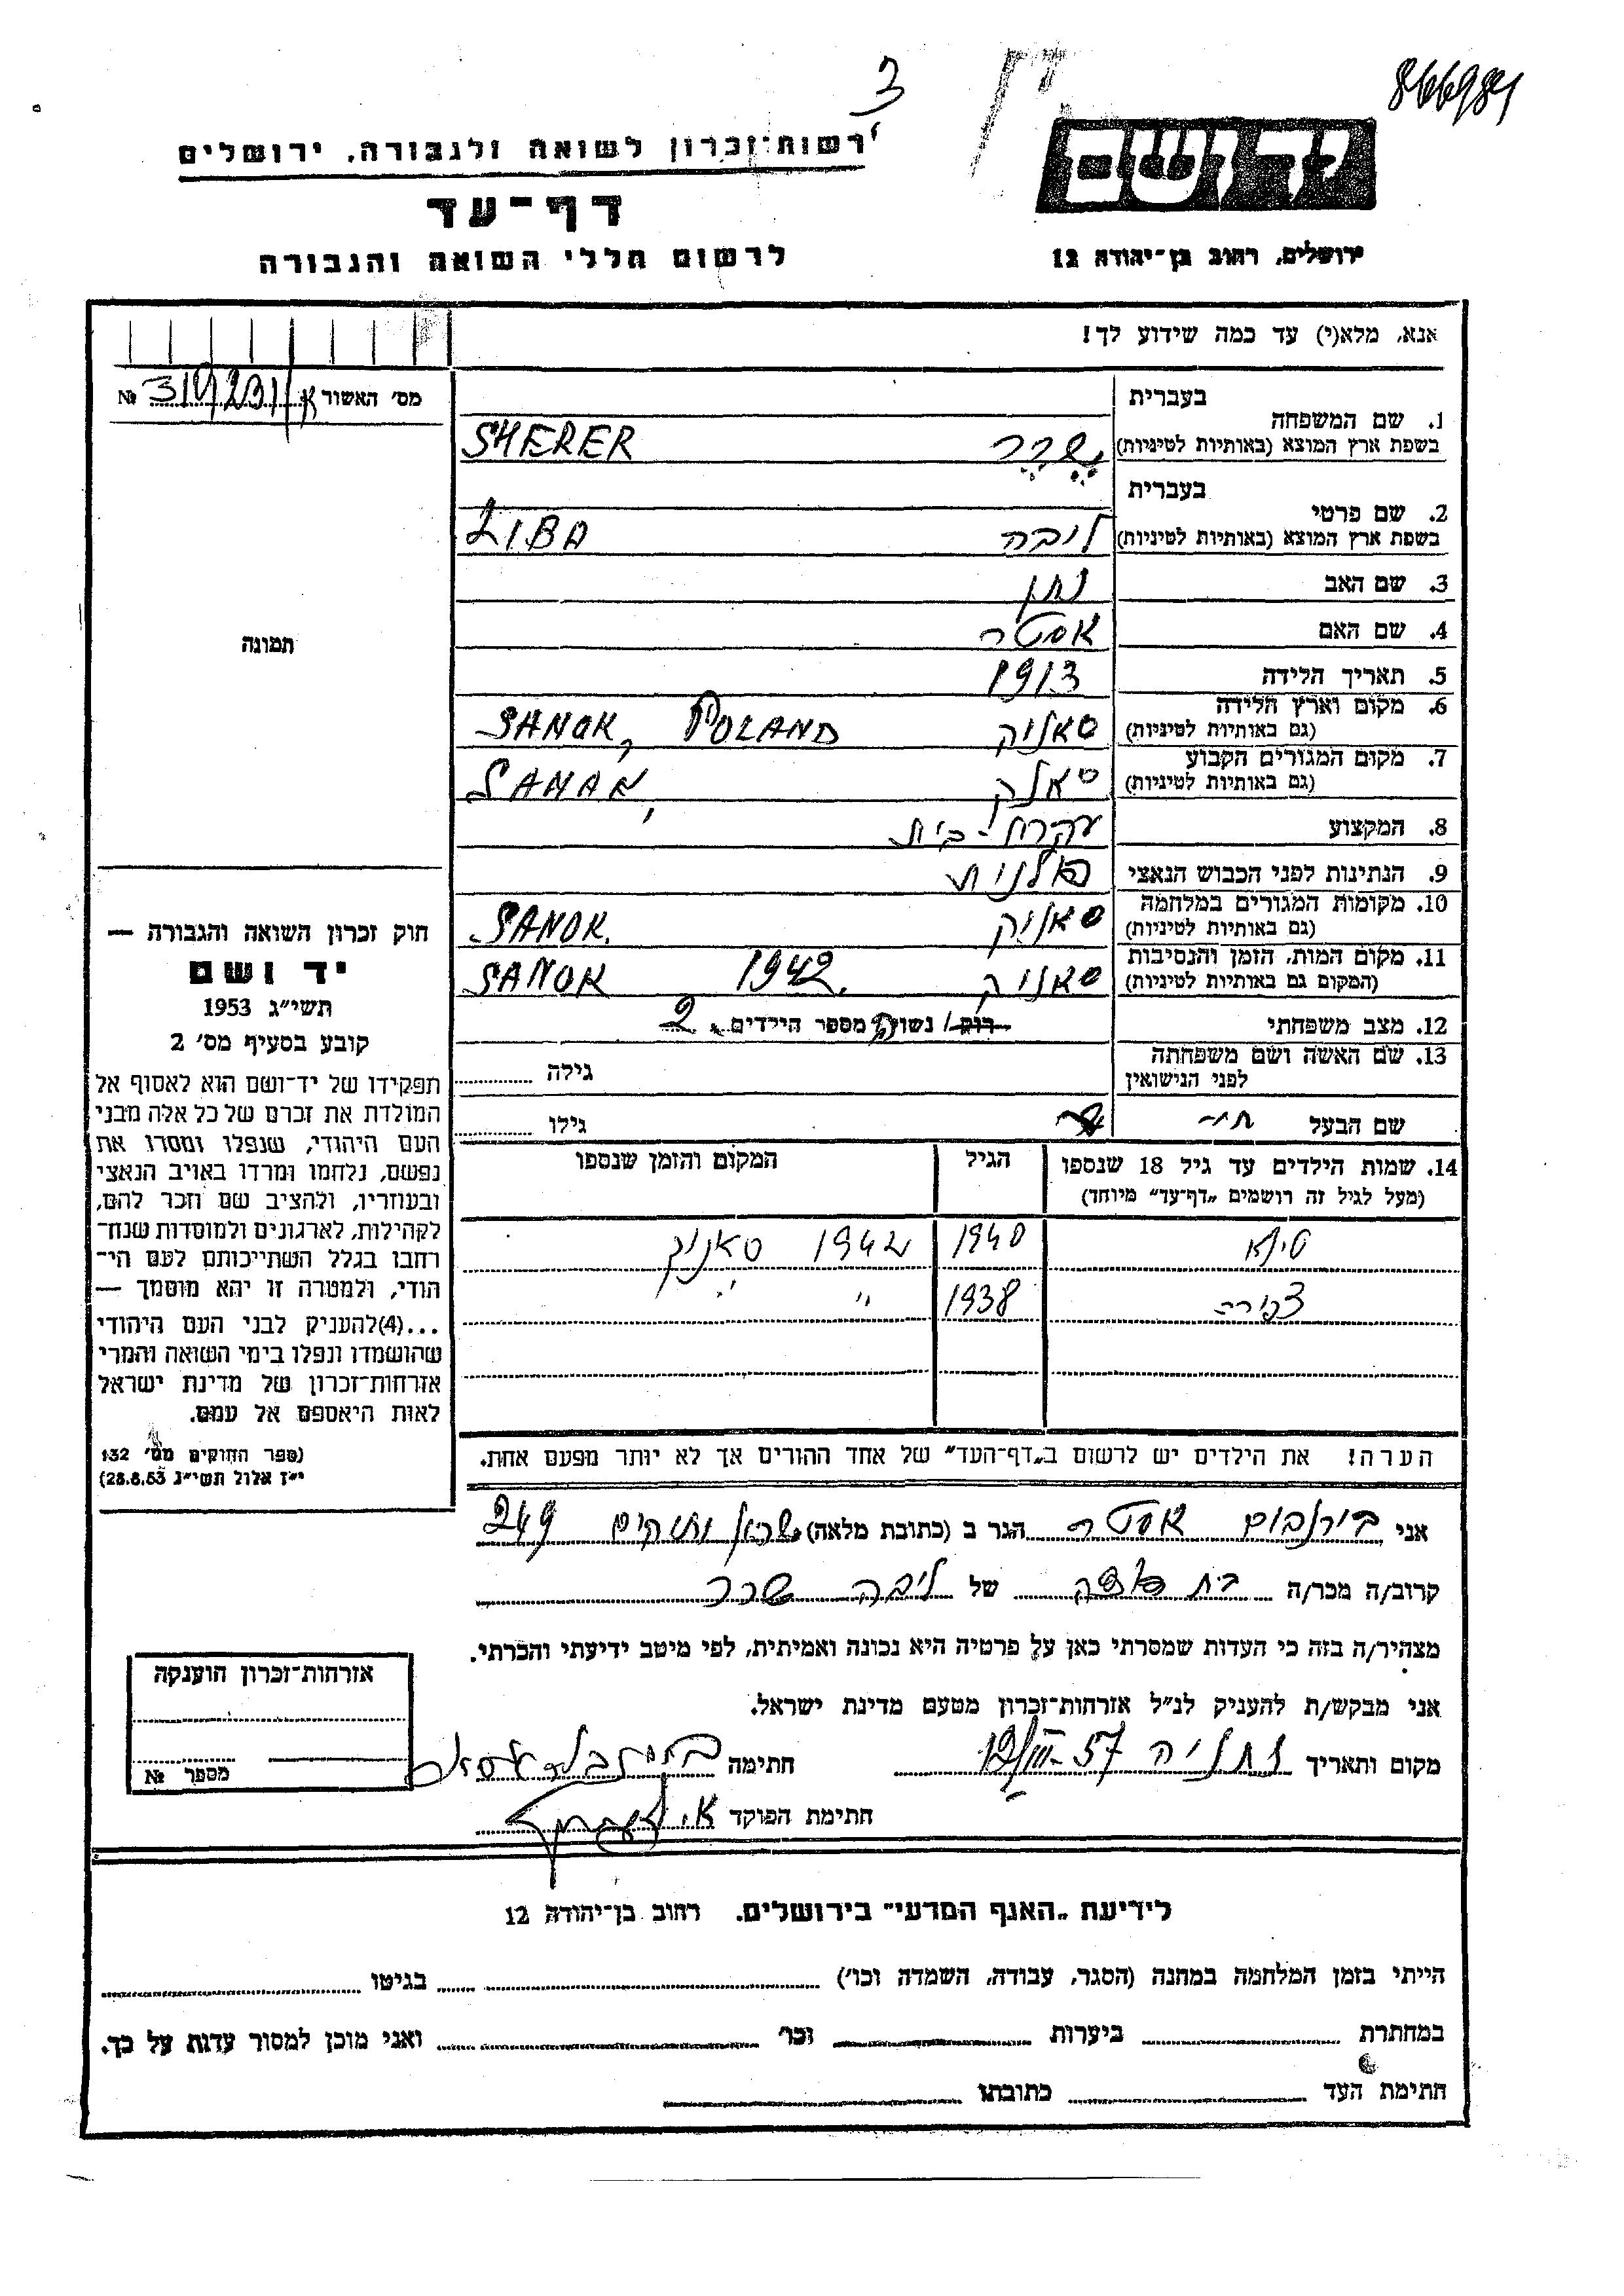 3
866984
רשות־זכרון לשואה ולגבורה, ירושלים
דף־עד
לרשום חללי השואה והגבורה
יד ושם
ירושלים, רחוב בן־יהודה 12
אנא, מלא(י) עד כמה שידוע לך!
מס׳ האשור №
1. שם המשפחה בעברית
בשפת ארץ המוצא (באותיות לטיניות) שרר SHERER
2. שם פרטי בעברית
בשפת ארץ המוצא (באותיות לטיניות) ליבה LIBA
3. שם האב נתן
4. שם האם אסטר
5. תאריך הלידה 1913
6. מקום וארץ הלידה
(גם באותיות לטיניות) סאנוק SANOK, POLAND
7. מקום המגורים הקבוע
(גם באותיות לטיניות)
8. המקצוע עקרת-בית
9. הנתינות לפני הכבוש הנאצי פולנית
10. מקומות המגורים במלחמה
(גם באותיות לטיניות) סאנוק SANOK.
11. מקום המות, הזמן והנסיבות
(המקום גם באותיות לטיניות) סאנוק 1942. SANOK
12. מצב משפחתי רוק / נשוי/ה מספר הילדים 2
13. שם האשה ושם משפחתה
לפני הנישואין גילה
שם הבעל גילו
14. שמות הילדים עד גיל 18 שנספו הגיל המקום והזמן שנספו
(מעל לגיל זה רושמים „דף־עד״ מיוחד)
1940 1942 סאנוק
צפורה 1938 ״ ״
הערה! את הילדים יש לרשום ב„דף־העד״ של אחד ההורים אך לא יותר מפעם אחת.
תמונה
חוק זכרון השואה והגבורה —
יד ושם
תשי״ג 1953
קובע בסעיף מס׳ 2
תפקידו של יד־ושם הוא לאסוף אל
המולדת את זכרם של כל אלה מבני
העם היהודי, שנפלו ומסרו את
נפשם, נלחמו ומרדו באויב הנאצי
ובעוזריו, ולהציב שם וזכר להם,
לקהילות, לארגונים ולמוסדות שנח־
רבו בגלל השתייכותם לעם הי־
הודי, ולמטרה זו יהא מוסמך —
...(4) להעניק לבני העם היהודי
שהושמדו ונפלו בימי השואה והמרי
אזרחות־זכרון של מדינת ישראל
לאות היאספם אל עמם.
(ספר החוקים מס׳ 132
י״ז אלול תשי״ג 28.8.53)
אני בירנבוים אסטר הגר ב (כתובת מלאה) 249
קרוב/ה מכר/ה בת של ליבה שרר
מצהיר/ה בזה כי העדות שמסרתי כאן על פרטיה היא נכונה ואמיתית, לפי מיטב ידיעתי והכרתי.
אני מבקש/ת להעניק לנ״ל אזרחות־זכרון מטעם מדינת ישראל.
מקום ותאריך נתניה 12/III-57 חתימה
חתימת הפוקד
אזרחות־זכרון הוענקה
מספר №
לידיעת „האגף המדעי״ בירושלים. רחוב בן־יהודה 12
הייתי בזמן המלחמה במחנה (הסגר, עבודה, השמדה וכו׳) בגיטו
במחתרת ביערות וכו׳ ואני מוכן למסור עדות על כך.
חתימת העד כתובתו